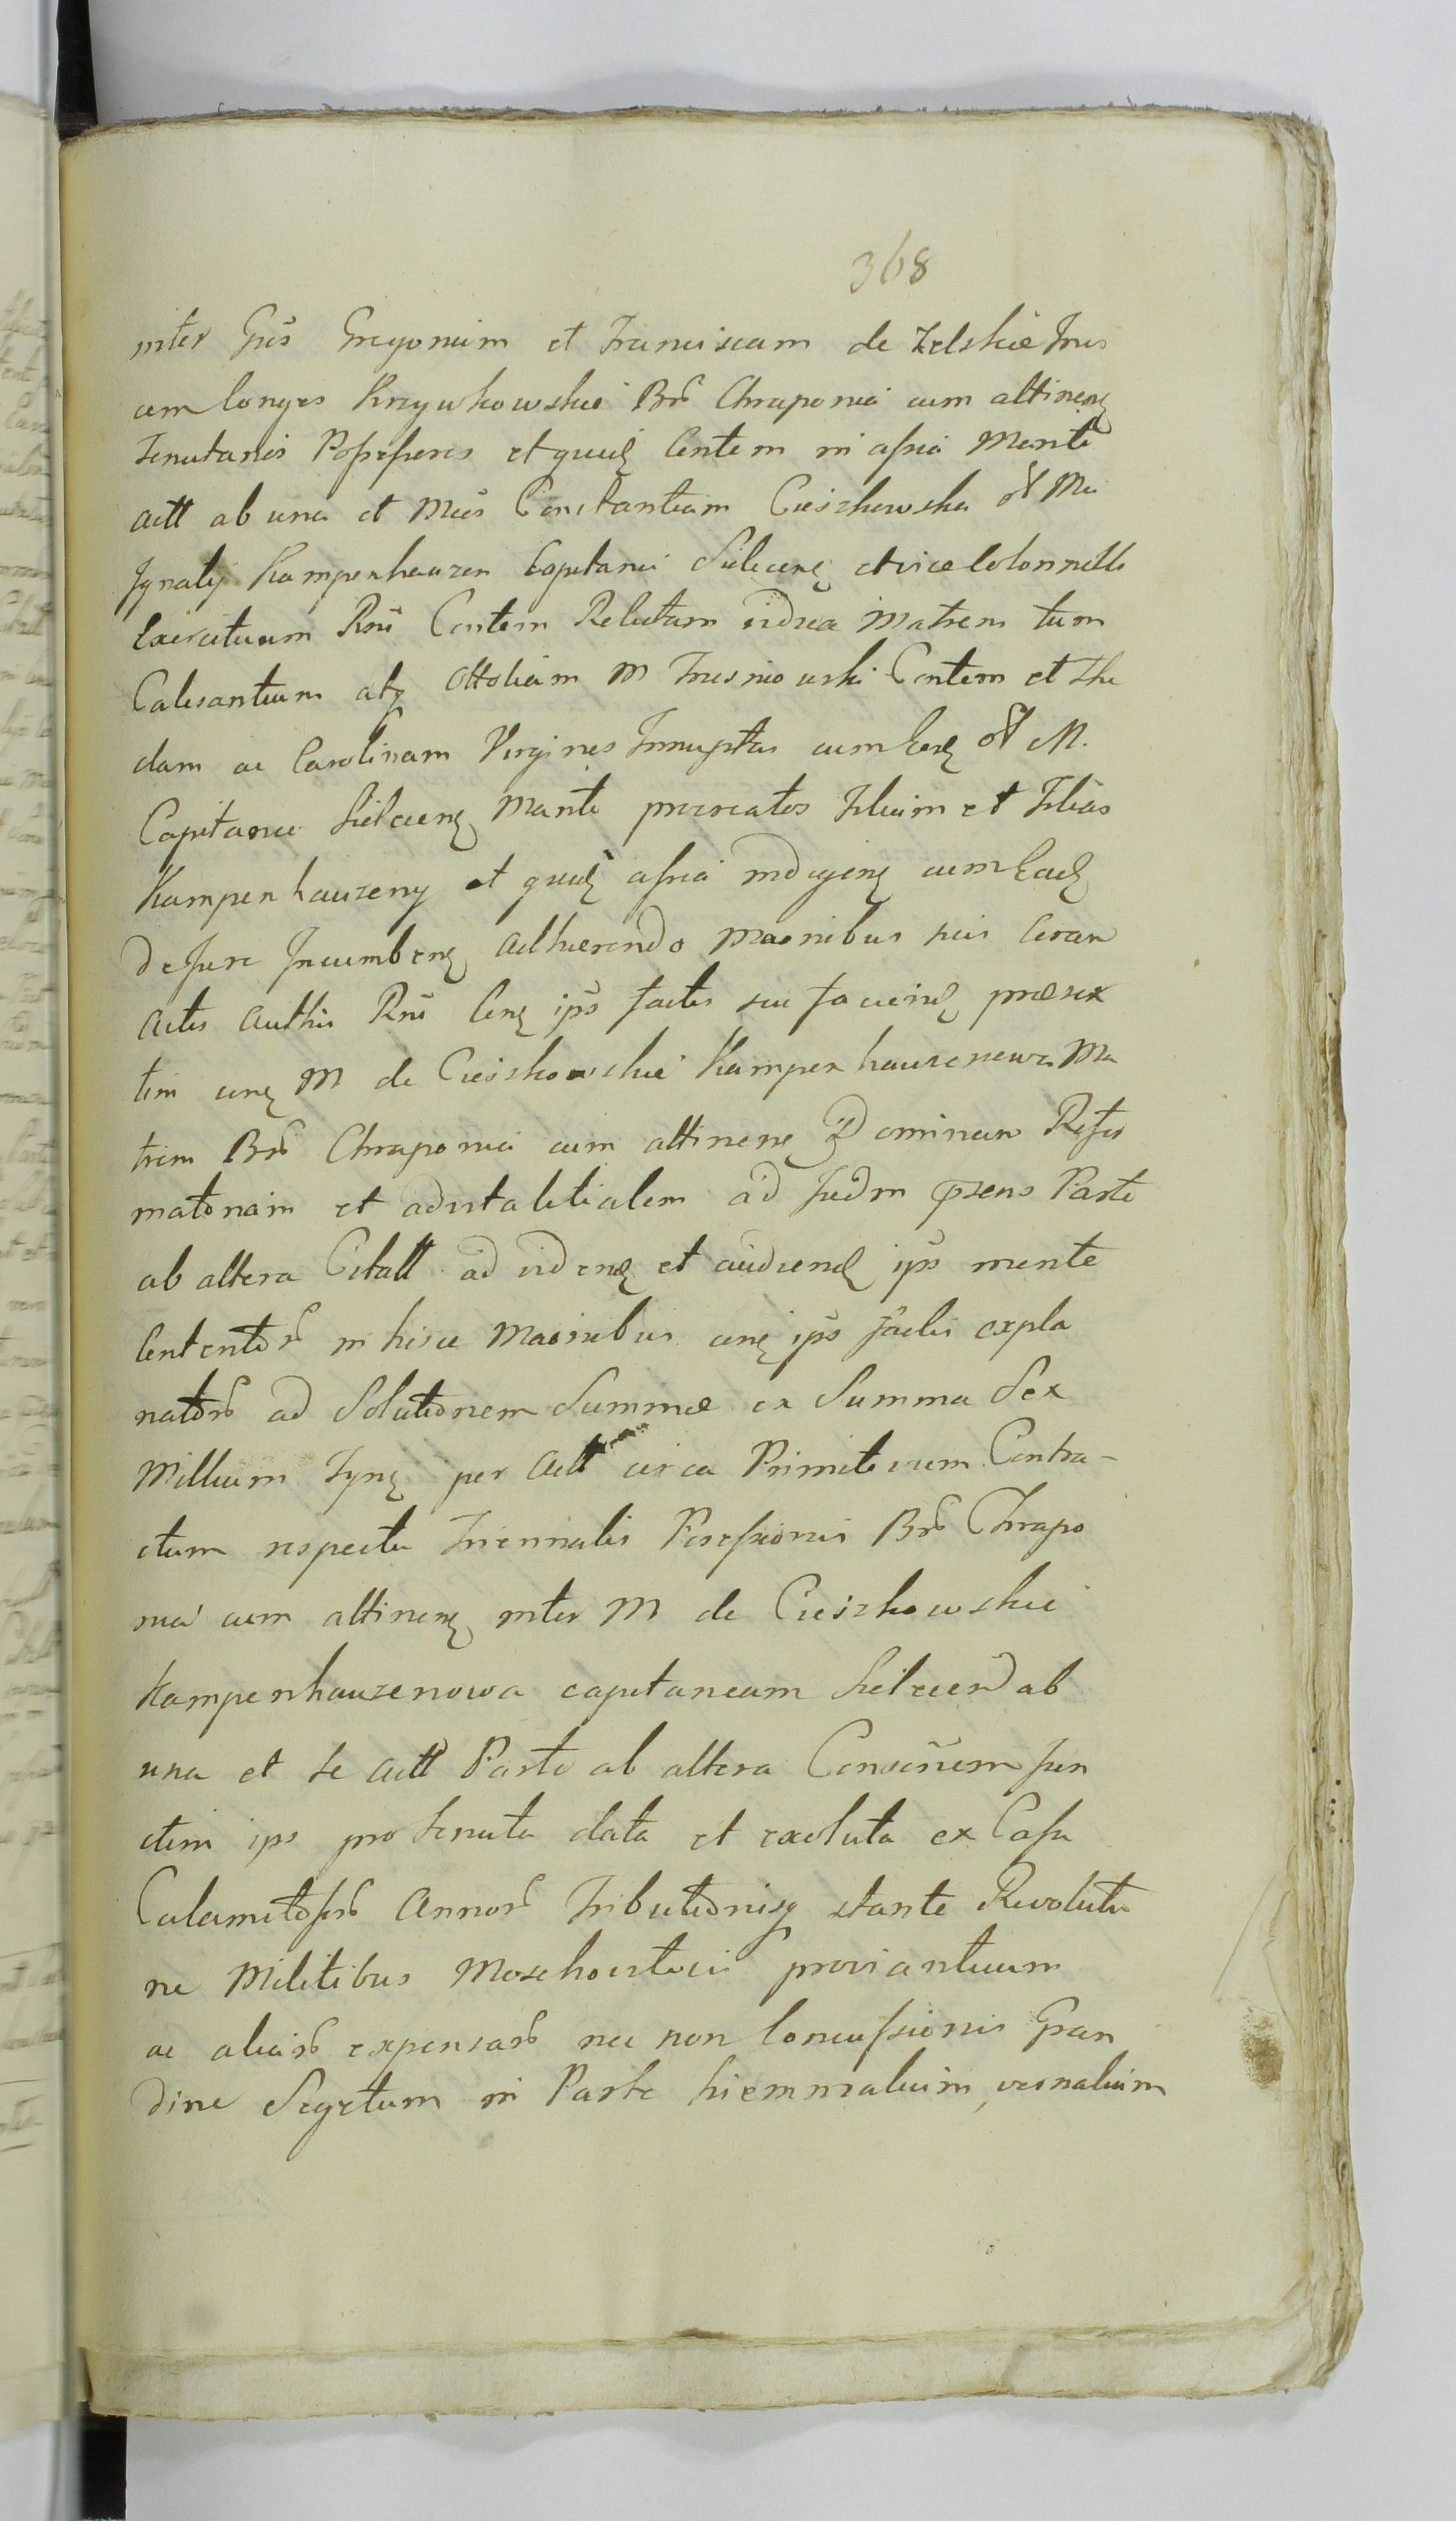 368
inter Gnos Gregorium et Franciscam de Zelskie Inis
cum longes Krzywkowskie Bnr Chraponia cum attinenz
Tenutarios Possessores et quudz Contem in assia Mente
actt ab una et Mcos Constantiam Cieszkowska ol Mci
Ignatij Kampenhauzen Capitanei Sielcienz et vice Colonnello
Exercituum Rni Contem Relictam viduca Matrem tum
Calesantium atq Ottoliam M Trusniowski Contem et The
clam ac Carolinam Virgines Innuptas cum Eodz ol M.
Capitaneo Sielcienz Marito procreatos Filium et Filias
Kampenhauzeny et quudz assia indigenz cum Eadz
de Jure Incumbenz adhaerendo Maonibus suis Coram
actis Authis Rni Cenz ips factis seu faciendz praesex
tim cenz M de Cieszkowskie Kampenhauzenowa Ma
trem Bnr Chraponia cum attinenz Dominam Refor
matoriam et advitalitialem ad Judm pzens Parte
ab altera Citatt ad videndz et audiendz ips mente
Contentor in hisce Maonibus cenz ips factis expla
nator ad Solutionem Summae ex Summa Sex
Millium Fynz per actt circa Primitivum Contra-
ctum respectu Triennalis Possessionis Bnr Chrapo
nia cum attinenz inter M de Cieszkowskie
Kampenhauzenowa capitaneam Sielcien ab
una et se actt Parte ab altera Consciriem Jun
ctim ips pro tenuta data et exoluta ex Casu
Calamitosor Annor Tributionisq stante Revolutio
ne Militibus Moschoviticis proviantuum
ac aliar expensar nec non Concussionis Gran
dine Segetum in Parte hiemnalium, vernalium